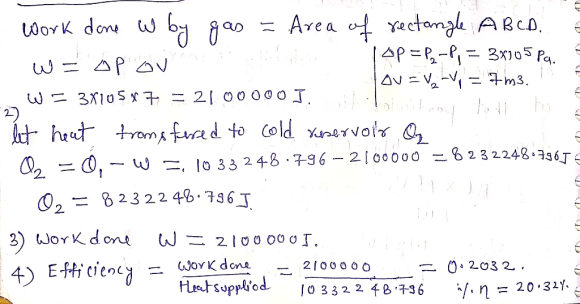 Work done W by gas = Area of rectangle ABCD.
W = ΔP ΔV | ΔP = P₂-P₁ = 3×10⁵ Pa.
ΔV = V₂-V₁ = 7m3.
W = 3×10⁵ × 7 = 21 00000 J.
2)
let heat transfered to cold reservoir Q₂
Q₂ = Q₁ - W = 1033248.796 - 2100000 = 8232248.796J
Q₂ = 8232248.796 J
3) Work done W = 2100000J.
4) Efficiency = Work done / Heat supplied = 2100000 / 10332248.796 = 0.2032. ∴ η = 20.32%.